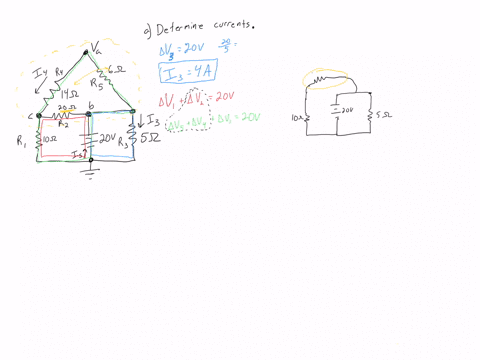 a) Determine currents.
ΔV₃ = 20V 20/5 =
I₃ = 4A
ΔV₁ + ΔV₂ = 20V
ΔV₅ + ΔV₄ + ΔV₁ = 20V
Va
I₄ R₄ 6Ω
14Ω R₅
c 20Ω b
R₂
R₁ 10Ω 20V R₃ 5Ω I₃
10Ω 20V 5Ω